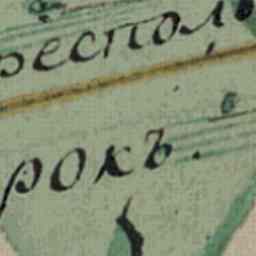 респол
рокъ.